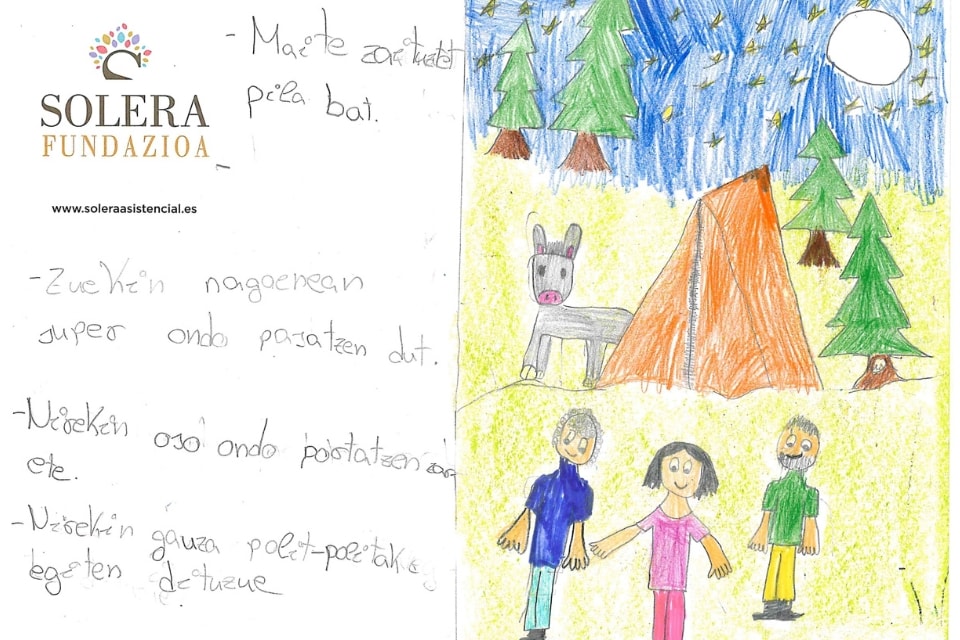 SOLERA
FUNDAZIOA
www.soleraasistencial.es
- Maite zaituztet
pila bat.
-
- Zuekin nagoenean
super ondo pasatzen dut.
- Nirekin oso ondo portatzen zara
ete.
- Nirekin gauza polit-politak
egiten dituzue